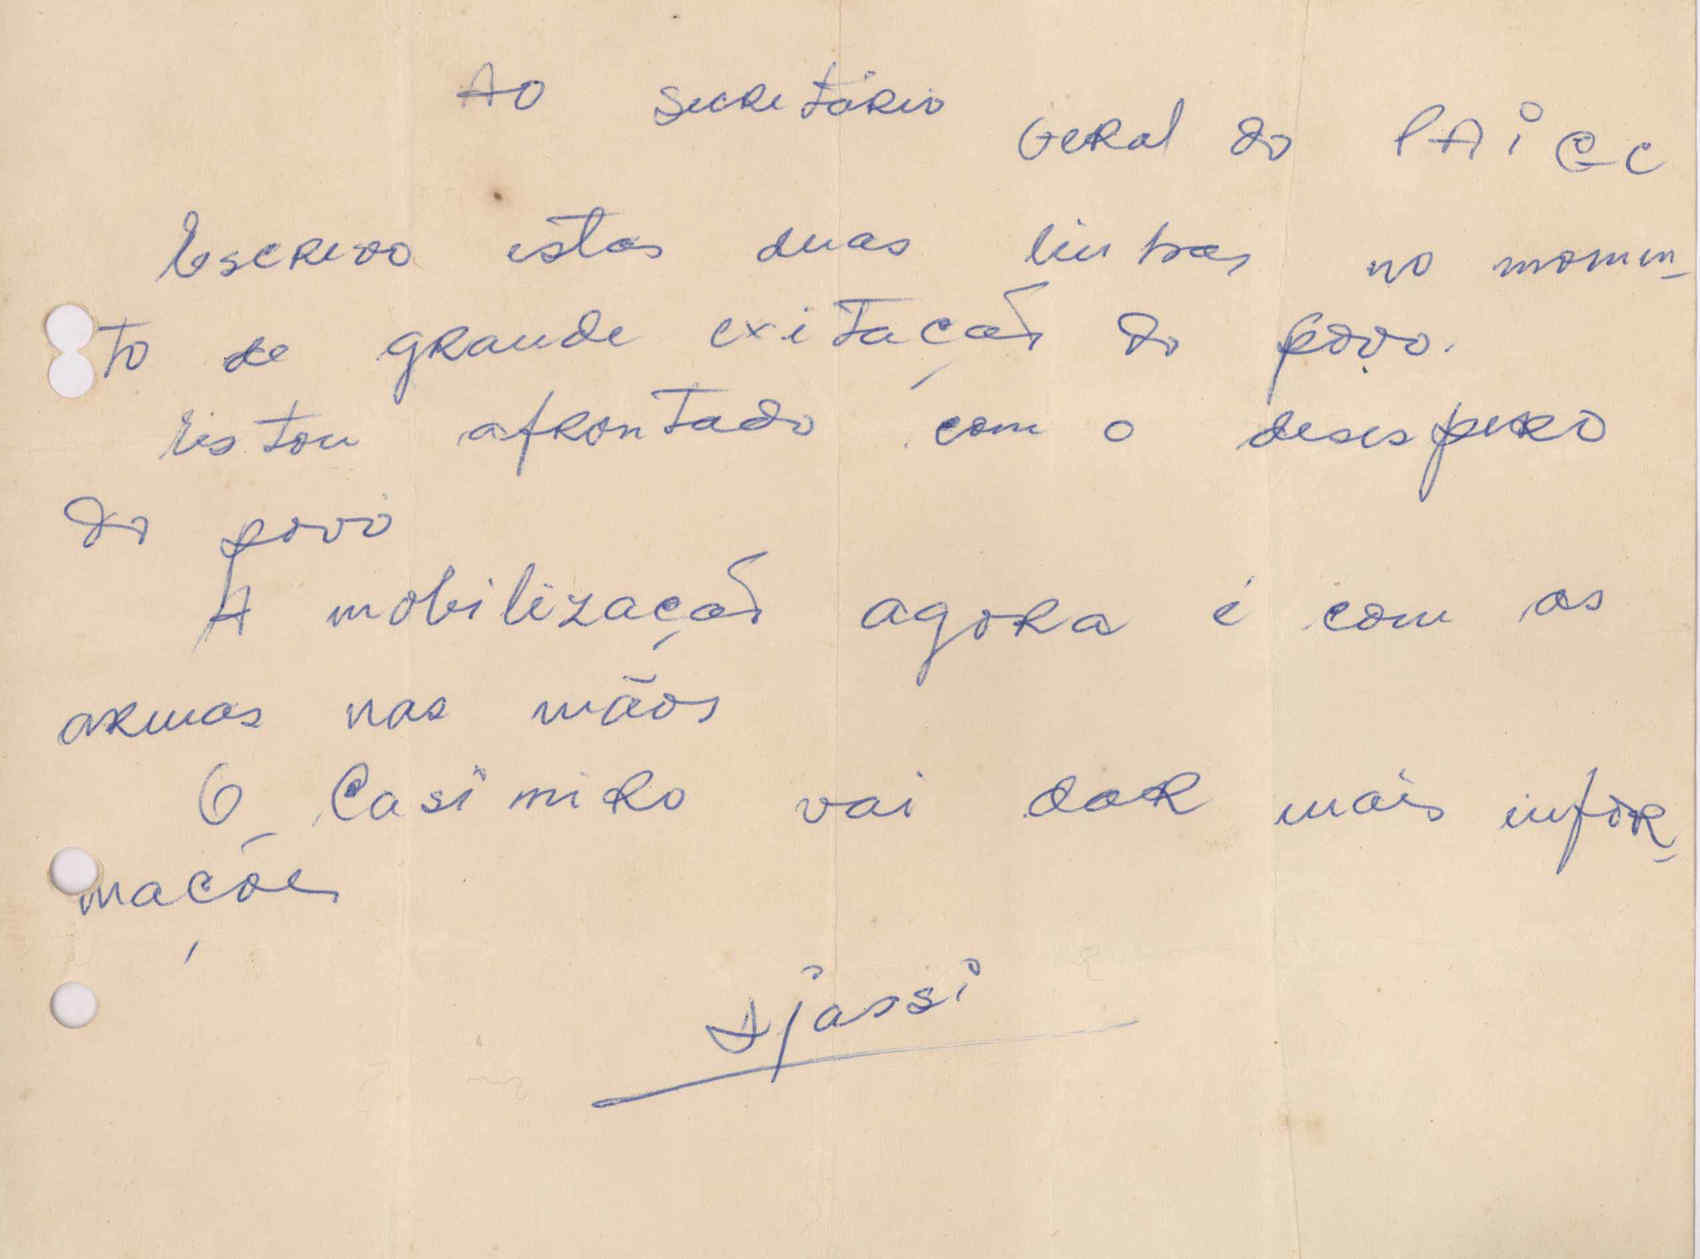 Ao Secretário Geral do PAIGC
Escrevo estas duas linhas no momen-
to de grande exitação do povo.
Estou afrontado com o desespero
do povo
A mobilização agora é com as
armas nas mãos
O Casimiro vai dar mais infor-
mações
Djassi